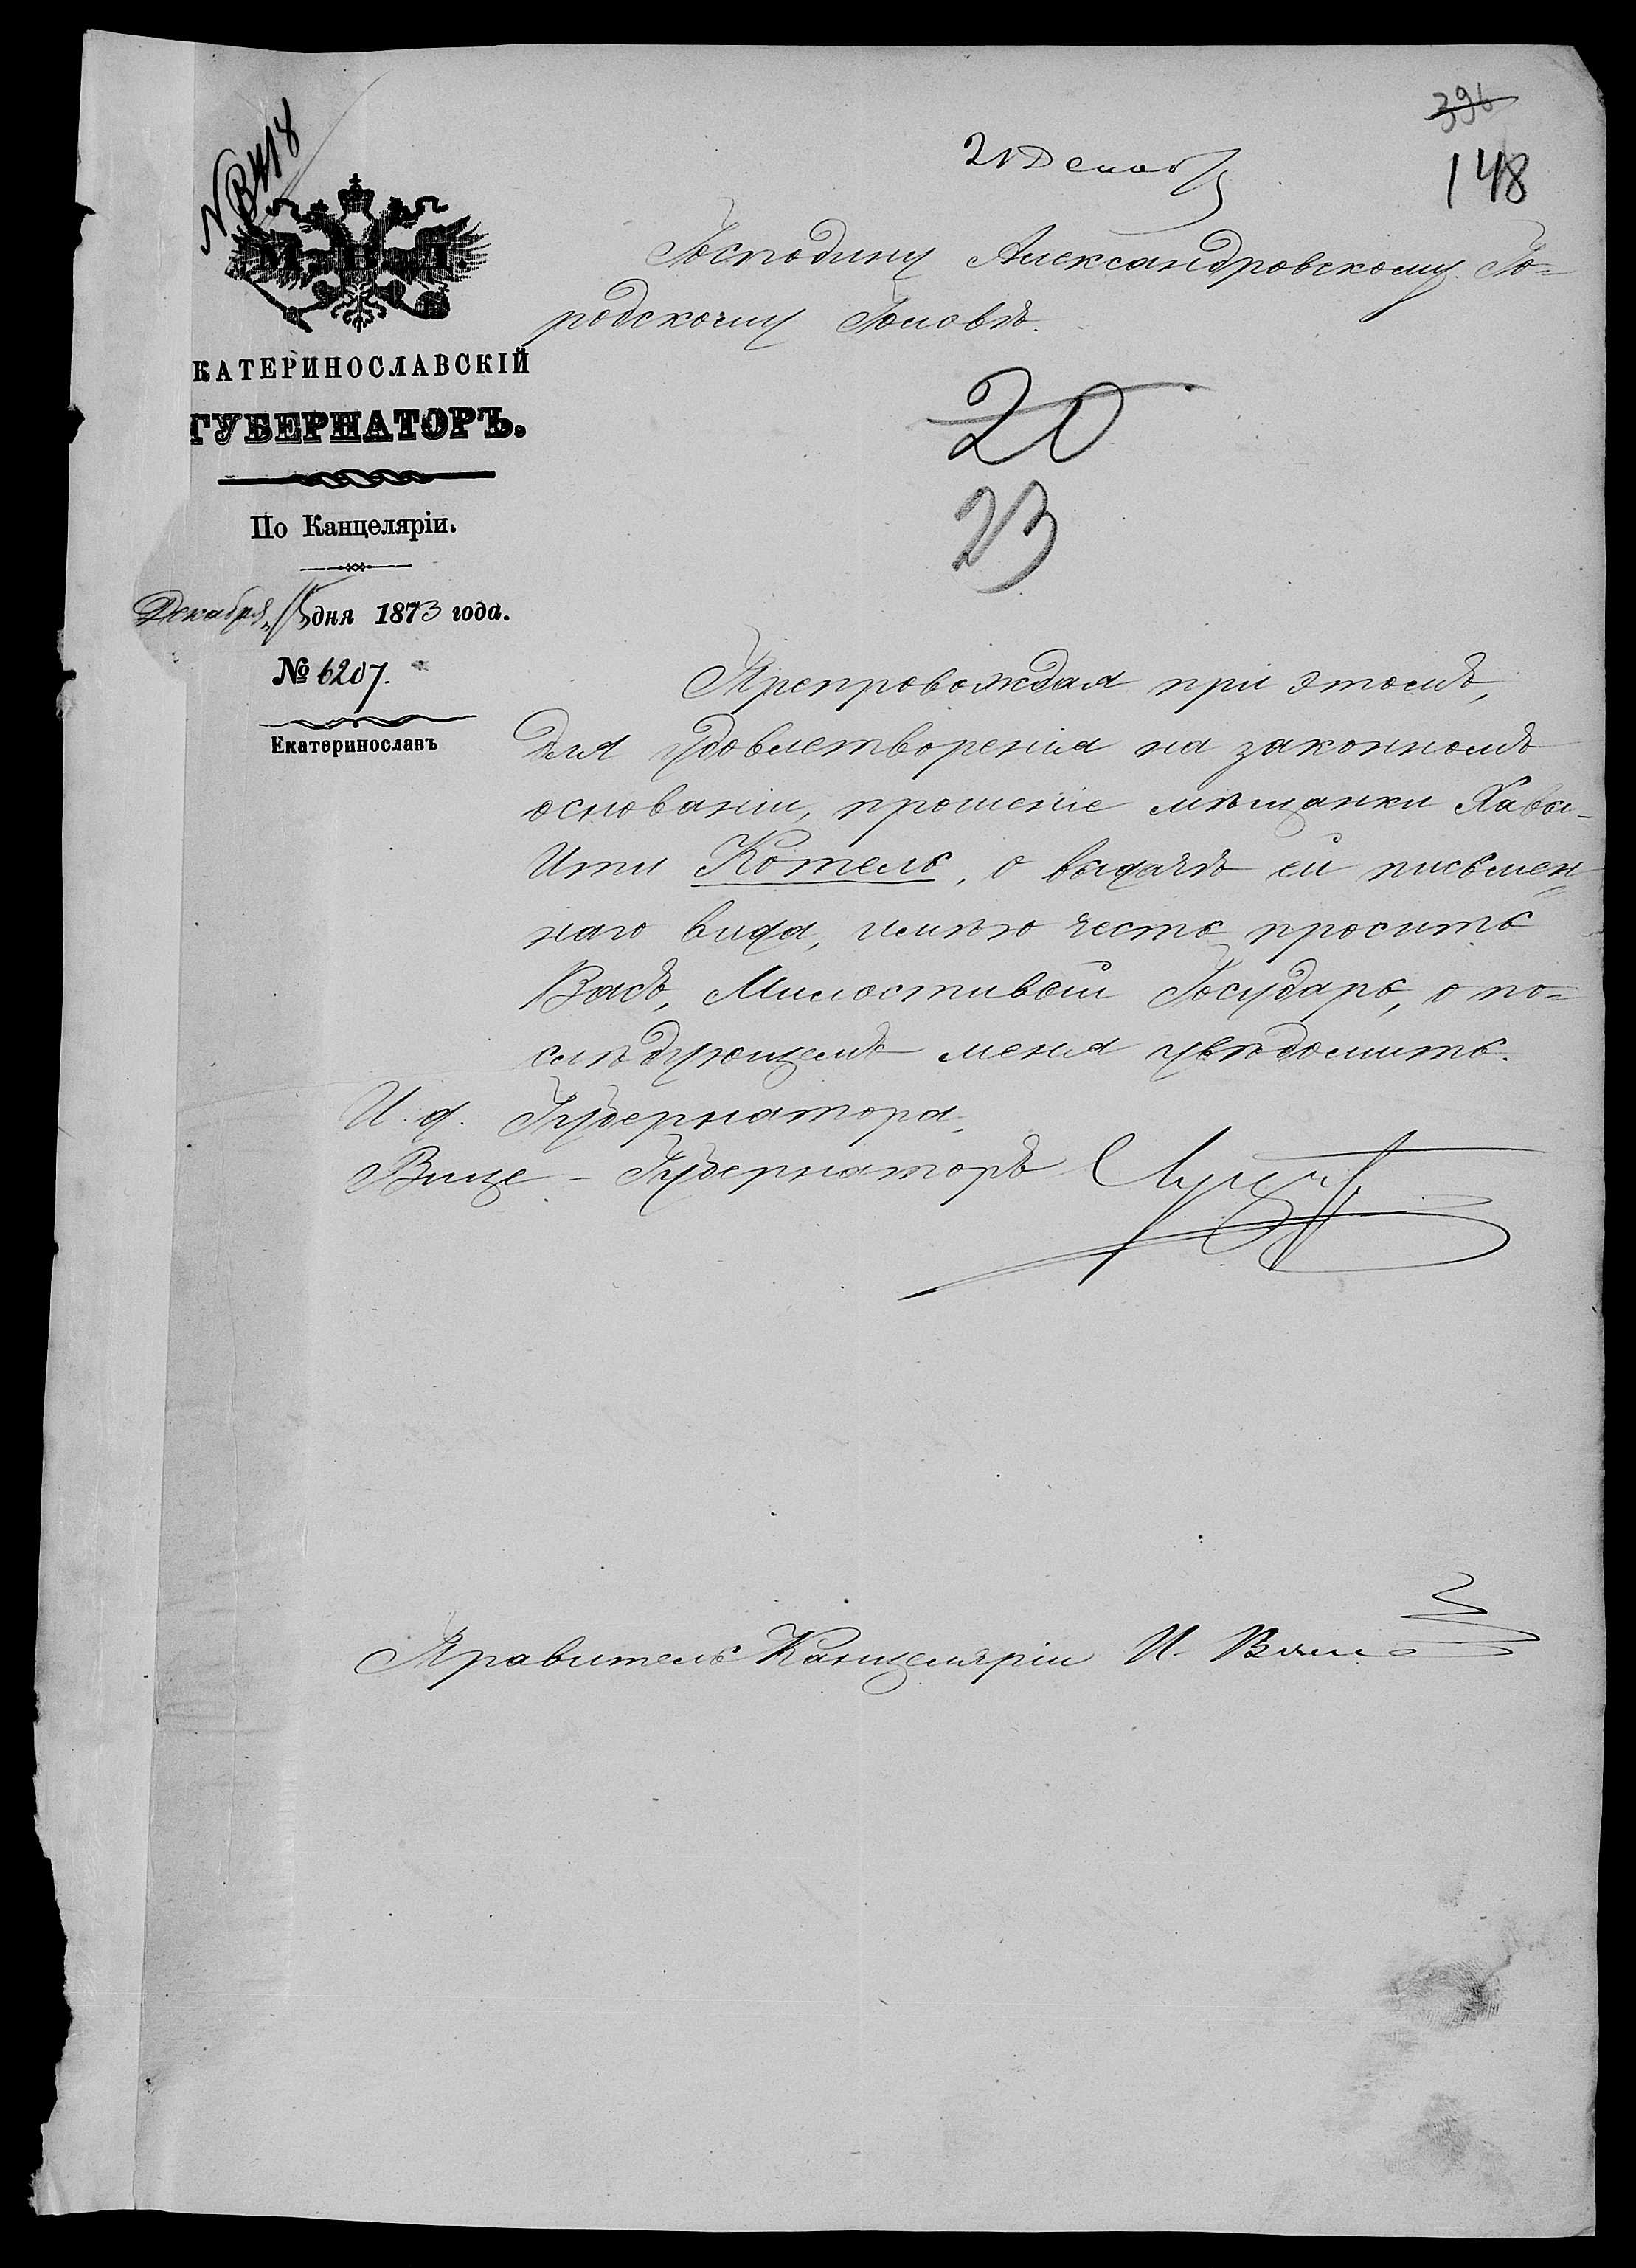 396
148
21 Декаб
М. В. Д.
Господину Александровскому Го-
родскому Головѣ.
КАТЕРИНОСЛАВСКІЙ
ГУБЕРНАТОРЪ.
20
23
По Канцеляріи.
Декабря 15 дня 1873 года.
№ 6207.
Екатеринославъ
Препровождая при этомъ,
для удовлетворенія на законномъ
основаніи, прошеніе мѣщанки Хавы-
Ити Котель, о выдачѣ ей письмен-
наго вида, имѣю честь просить
Васъ, Милостивый Государь, о по-
слѣдующемъ меня увѣдомить.
И. д. Губернатора,
Вице-Губернаторъ
Правитель Канцеляріи И.